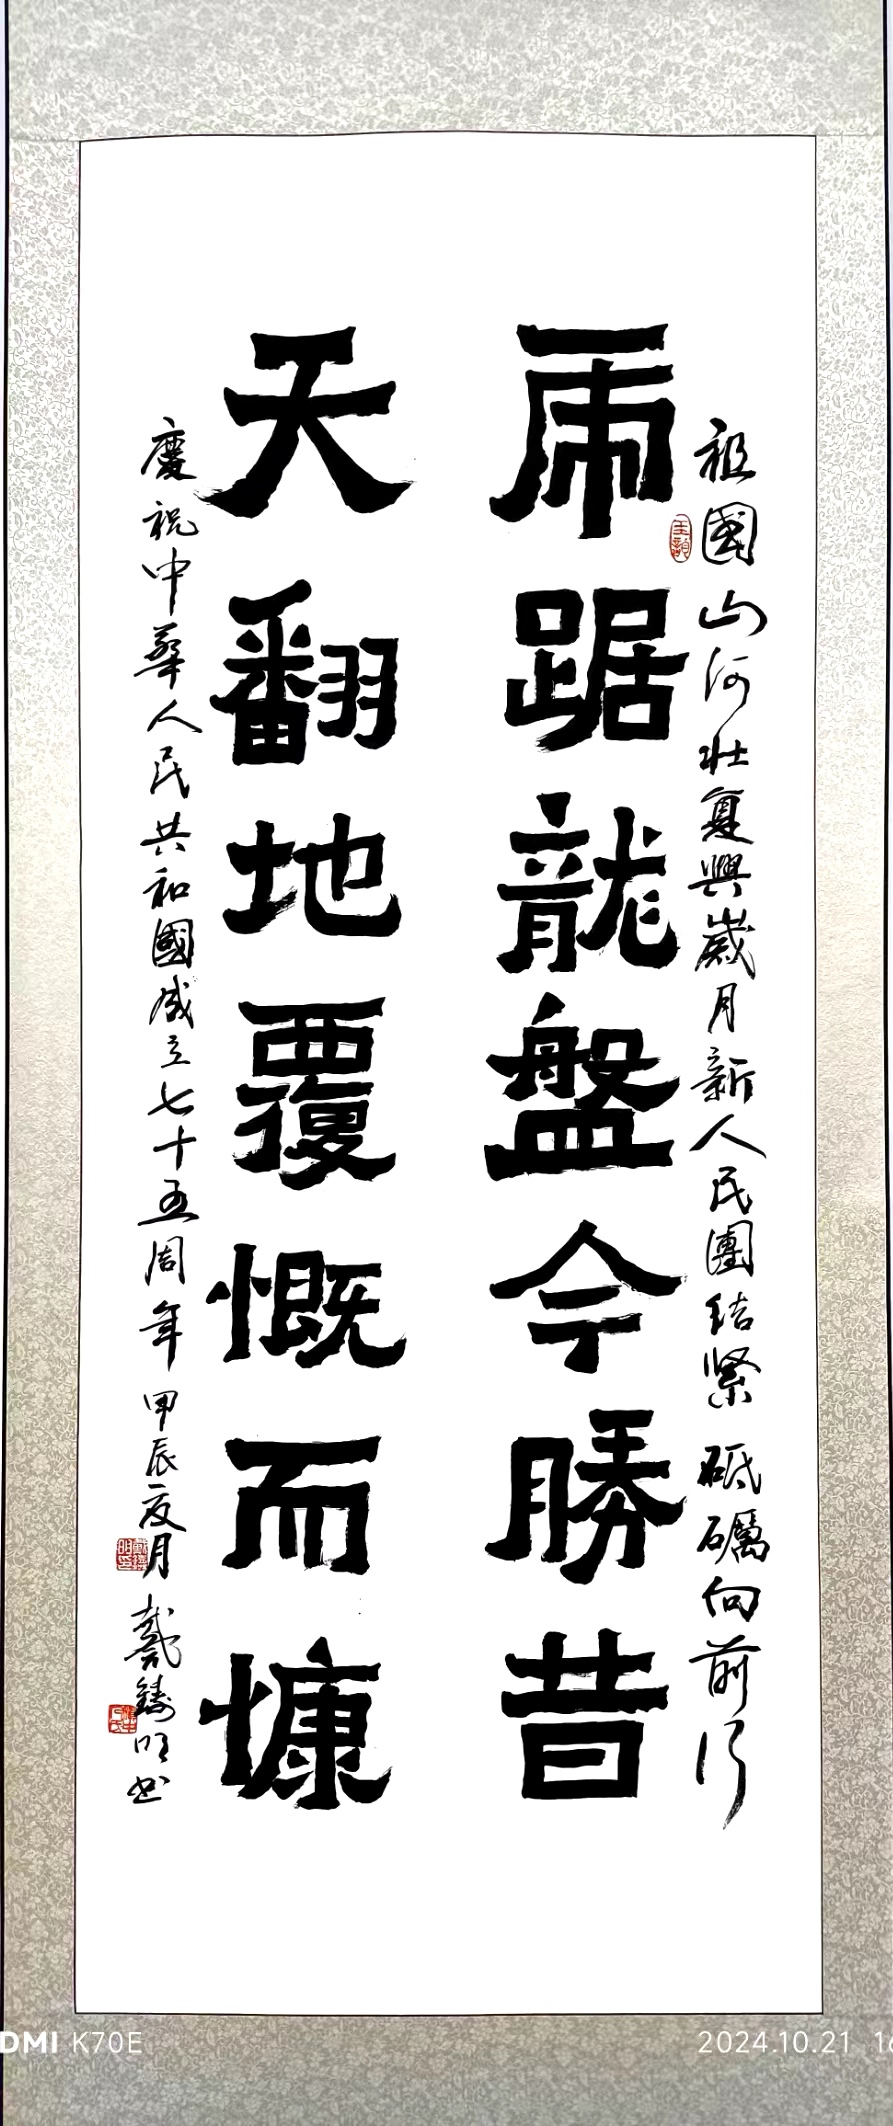 祖國山河壯復興歲月新人民團結緊砥礪向前行
虎踞龍盤今勝昔
天翻地覆慨而慷
慶祝中華人民共和國成立七十五周年甲辰夏月戴鑄明書
DMI K70E
2024.10.21 16